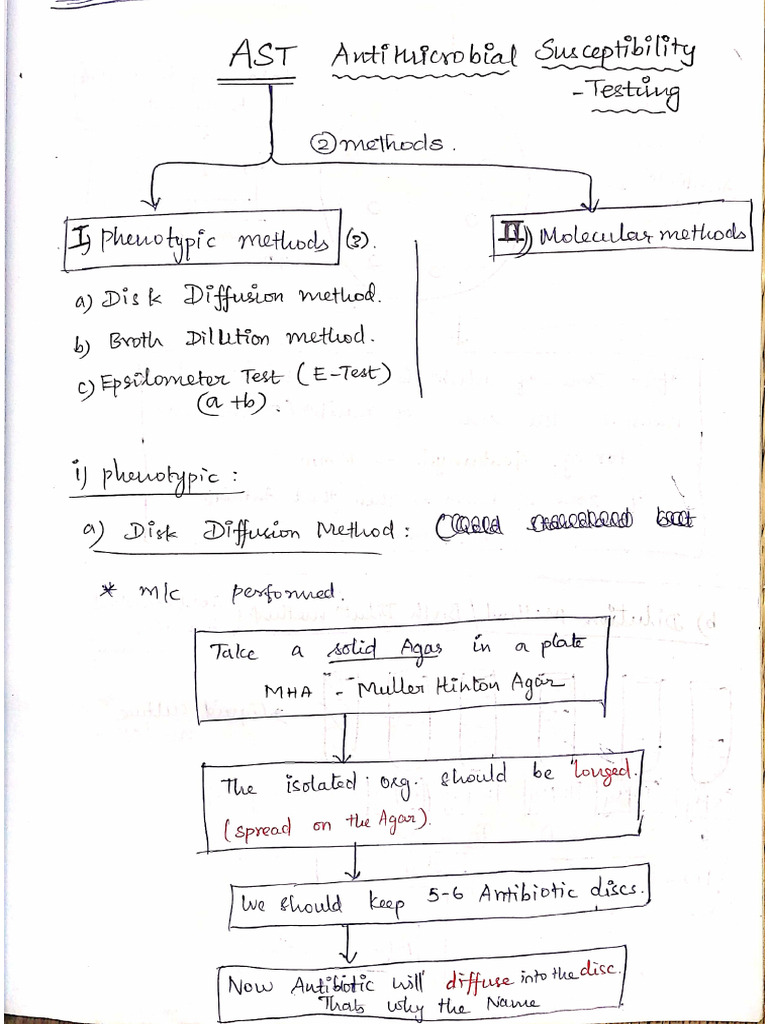 AST Antimicrobial Susceptibility
- Testing
② methods.
I) Phenotypic methods (3).
II) Molecular methods
a) Disk Diffusion method.
b) Broth Dilution method.
c) Epsilometer Test (E-Test)
(a+b).
i) phenotypic :
a) Disk Diffusion Method :
* m/c performed.
Take a solid Agar in a plate
MHA "-" Muller Hinton Agar
The isolated org. should be "longed.
(spread on the Agar).
We should keep 5-6 Antibiotic discs.
Now Antibiotic will diffuse into the disc.
Thats why the Name